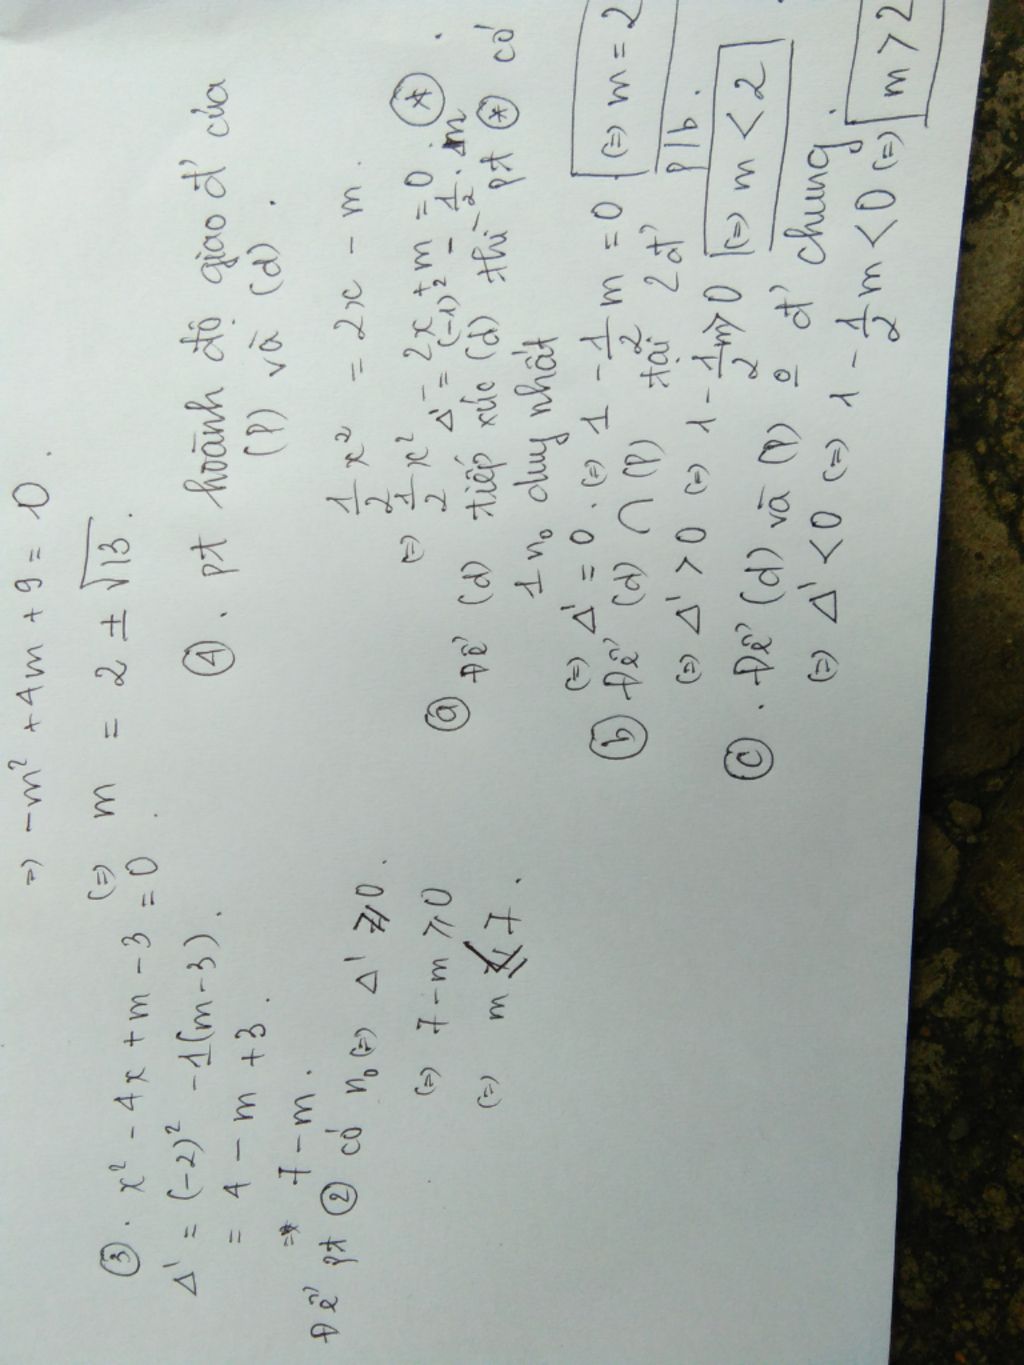 => -m² + 4m + 9 = 0.
(=) m = 2 ± √13.
③. x² - 4x + m - 3 = 0
Δ' = (-2)² - 1(m-3).
= 4 - m + 3.
= 7 - m.
Để pt ② có n₀ (=) Δ' ⩾ 0.
(=) 7 - m ⩾ 0
(=) m ⩽ 7.
④. pt hoành độ giao đ' của
(P) và (d).
1/2 x² = 2x - m.
(=) 1/2 x² - 2x + m = 0. (*)
Δ' = (-1)² - 1/2 . m
ⓐ Để (d) tiếp xúc (d) thì pt (*) có
1 n₀ duy nhất
(=) Δ' = 0. (=) 1 - 1/2 m = 0 (=) m = 2
ⓑ Để (d) ∩ (P) tại 2 đ' p/b.
(=) Δ' > 0 (=) 1 - 1/2 m > 0 (=) m < 2
ⓒ. Để (d) và (P) o đ' chung.
(=) Δ' < 0 (=) 1 - 1/2 m < 0 (=) m > 2